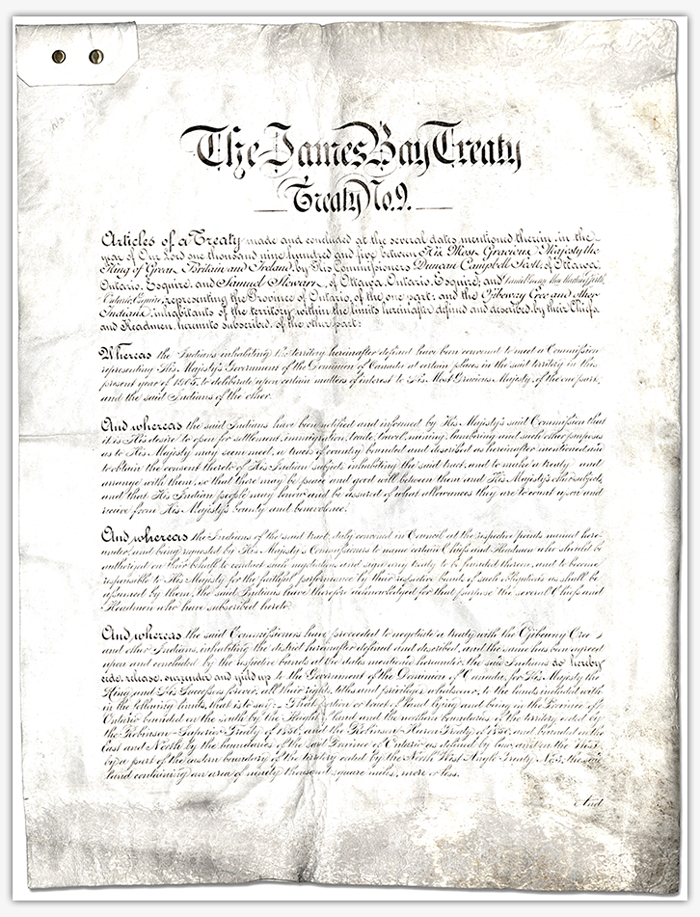 The James Bay Treaty
Treaty No. 9.
Articles of a Treaty made and concluded at the several dates mentioned therein, in the
year of Our Lord one thousand nine hundred and five between His Most Gracious Majesty the
King of Great Britain and Ireland, by His Commissioners Duncan Campbell Scott, of Ottawa,
Ontario, Esquire, and Samuel Stewart, of Ottawa, Ontario, Esquire; and
Ontario, Esquire, representing the Province of Ontario, of the one part; and the Ojibeway Cree and other
Indians, inhabitants of the territory within the limits hereinafter defined and described, by their Chiefs,
and Headmen hereunto subscribed, of the other part:
Whereas the Indians inhabiting the territory hereinafter defined have been convened to meet a Commission
representing His Majesty's Government of the Dominion of Canada at certain places in the said territory in this
present year of 1905, to deliberate upon certain matters of interest to His Most Gracious Majesty, of the one part,
and the said Indians of the other.
And whereas the said Indians have been notified and informed by His Majesty's said Commission that
it is His desire to open for settlement, immigration, trade, travel, mining, lumbering and such other purposes
as to His Majesty may seem meet, a tract of country bounded and described as hereinafter mentioned, and
to obtain the consent thereto of His Indian subjects inhabiting the said tract, and to make a treaty and
arrange with them, so that there may be peace and good will between them and His Majesty's other subjects,
and that His Indian people may know and be assured of what allowances they are to count upon and
receive from His Majesty's bounty and benevolence.
And whereas the Indians of the said tract, duly convened in Council at the respective points named here-
under, and being requested by His Majesty's Commissioners to name certain Chiefs and Headmen who should be
authorized on their behalf to conduct such negotiations and sign any treaty to be founded thereon, and to become
responsible to His Majesty for the faithful performance by their respective bands of such obligations as shall be
assumed by them, the said Indians have therefore acknowledged for that purpose the several Chiefs and
Headmen who have subscribed hereto.
And whereas the said Commissioners have proceeded to negotiate a treaty with the Ojibeway Cree
and other Indians, inhabiting the district hereinafter defined and described, and the same has been agreed
upon and concluded by the respective bands at the dates mentioned hereunder, the said Indians do hereby
cede, release, surrender and yield up to the Government of the Dominion of Canada, for His Majesty the
King and His Successors forever, all their rights, titles and privileges whatsoever, to the lands included within
the following limits, that is to say:- That portion or tract of land lying and being in the Province of
Ontario bounded on the South by the Height of land and the northern boundaries of the territory ceded by
the Robinson-Superior Treaty of 1850, and the Robinson-Huron Treaty of 1850, and bounded on the
East and North by the boundaries of the said Province of Ontario as defined by law, and on the West
by a part of the eastern boundary of the territory ceded by the North West Angle Treaty No. 3; the said
land containing an area of ninety thousand square miles, more or less.
And